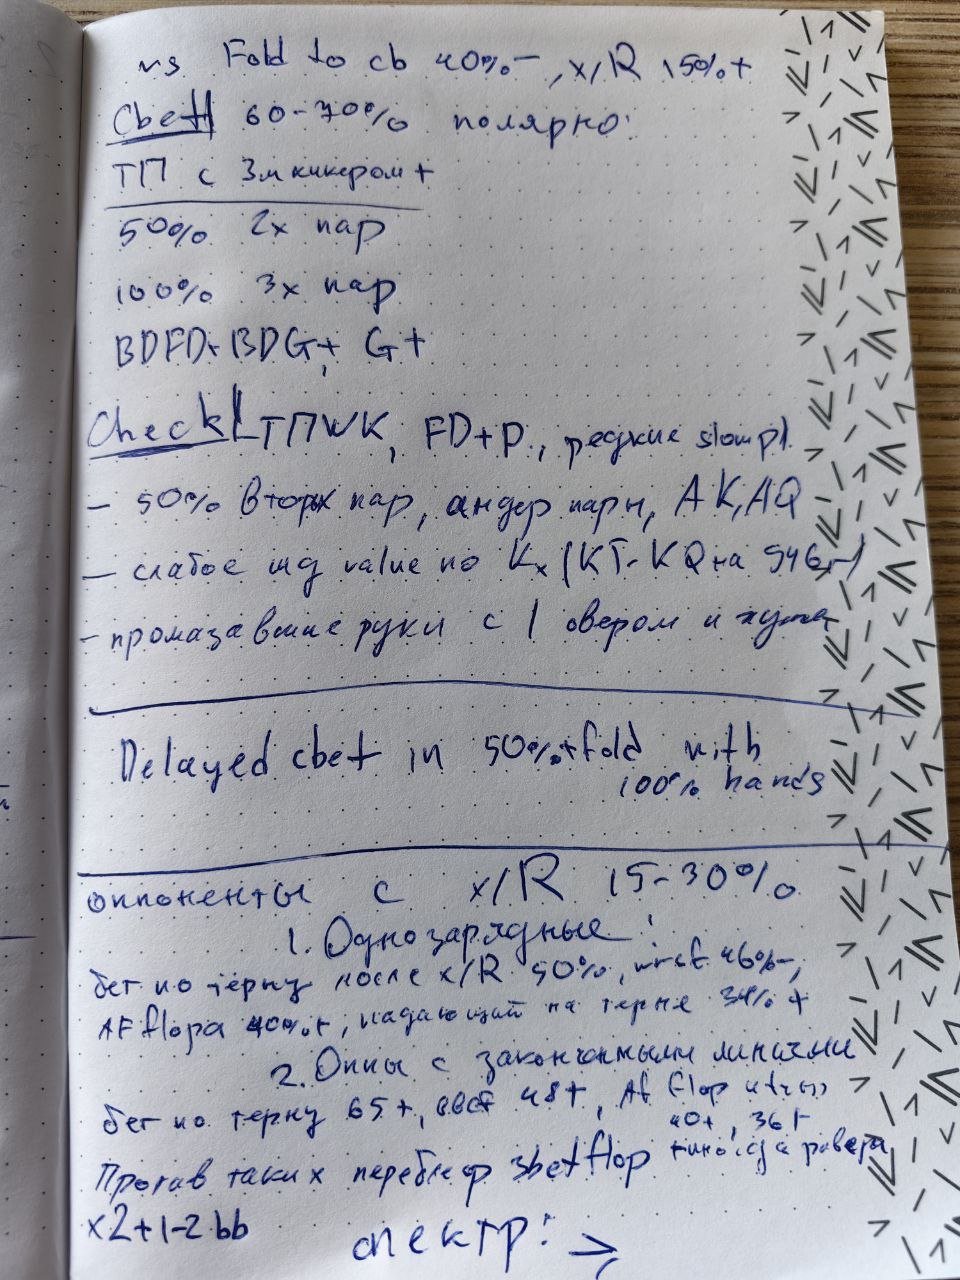 vs Fold to cb 40%-, x/R 15%+
Cbet 60-70% полярно:
ТП с 3м кикером+
50% 2х пар
100% 3х пар
BDFD+BDG+, G+
Check ТПWK, FD+P., редкие slowpl.
- 50% вторых пар, андер пары, AK, AQ
- слабое шд value по Kx (KT-KQ на 946
- промазавшие руки с 1 овером и хуже
Delayed cbet in 50%+fold with
100% hands
оппоненты с x/R 15-30%
1. Однозарядные:
бет по тёрну после x/R 50%, 46%-,
AF flopa 40%+, падающий на терне 34%+
2. Оппы с законченными линиями
бет по терну 65+, 48+, Af flop
40+, 36+
Против таких переблеф 3bet flop
x2+1-2bb
спектр: →